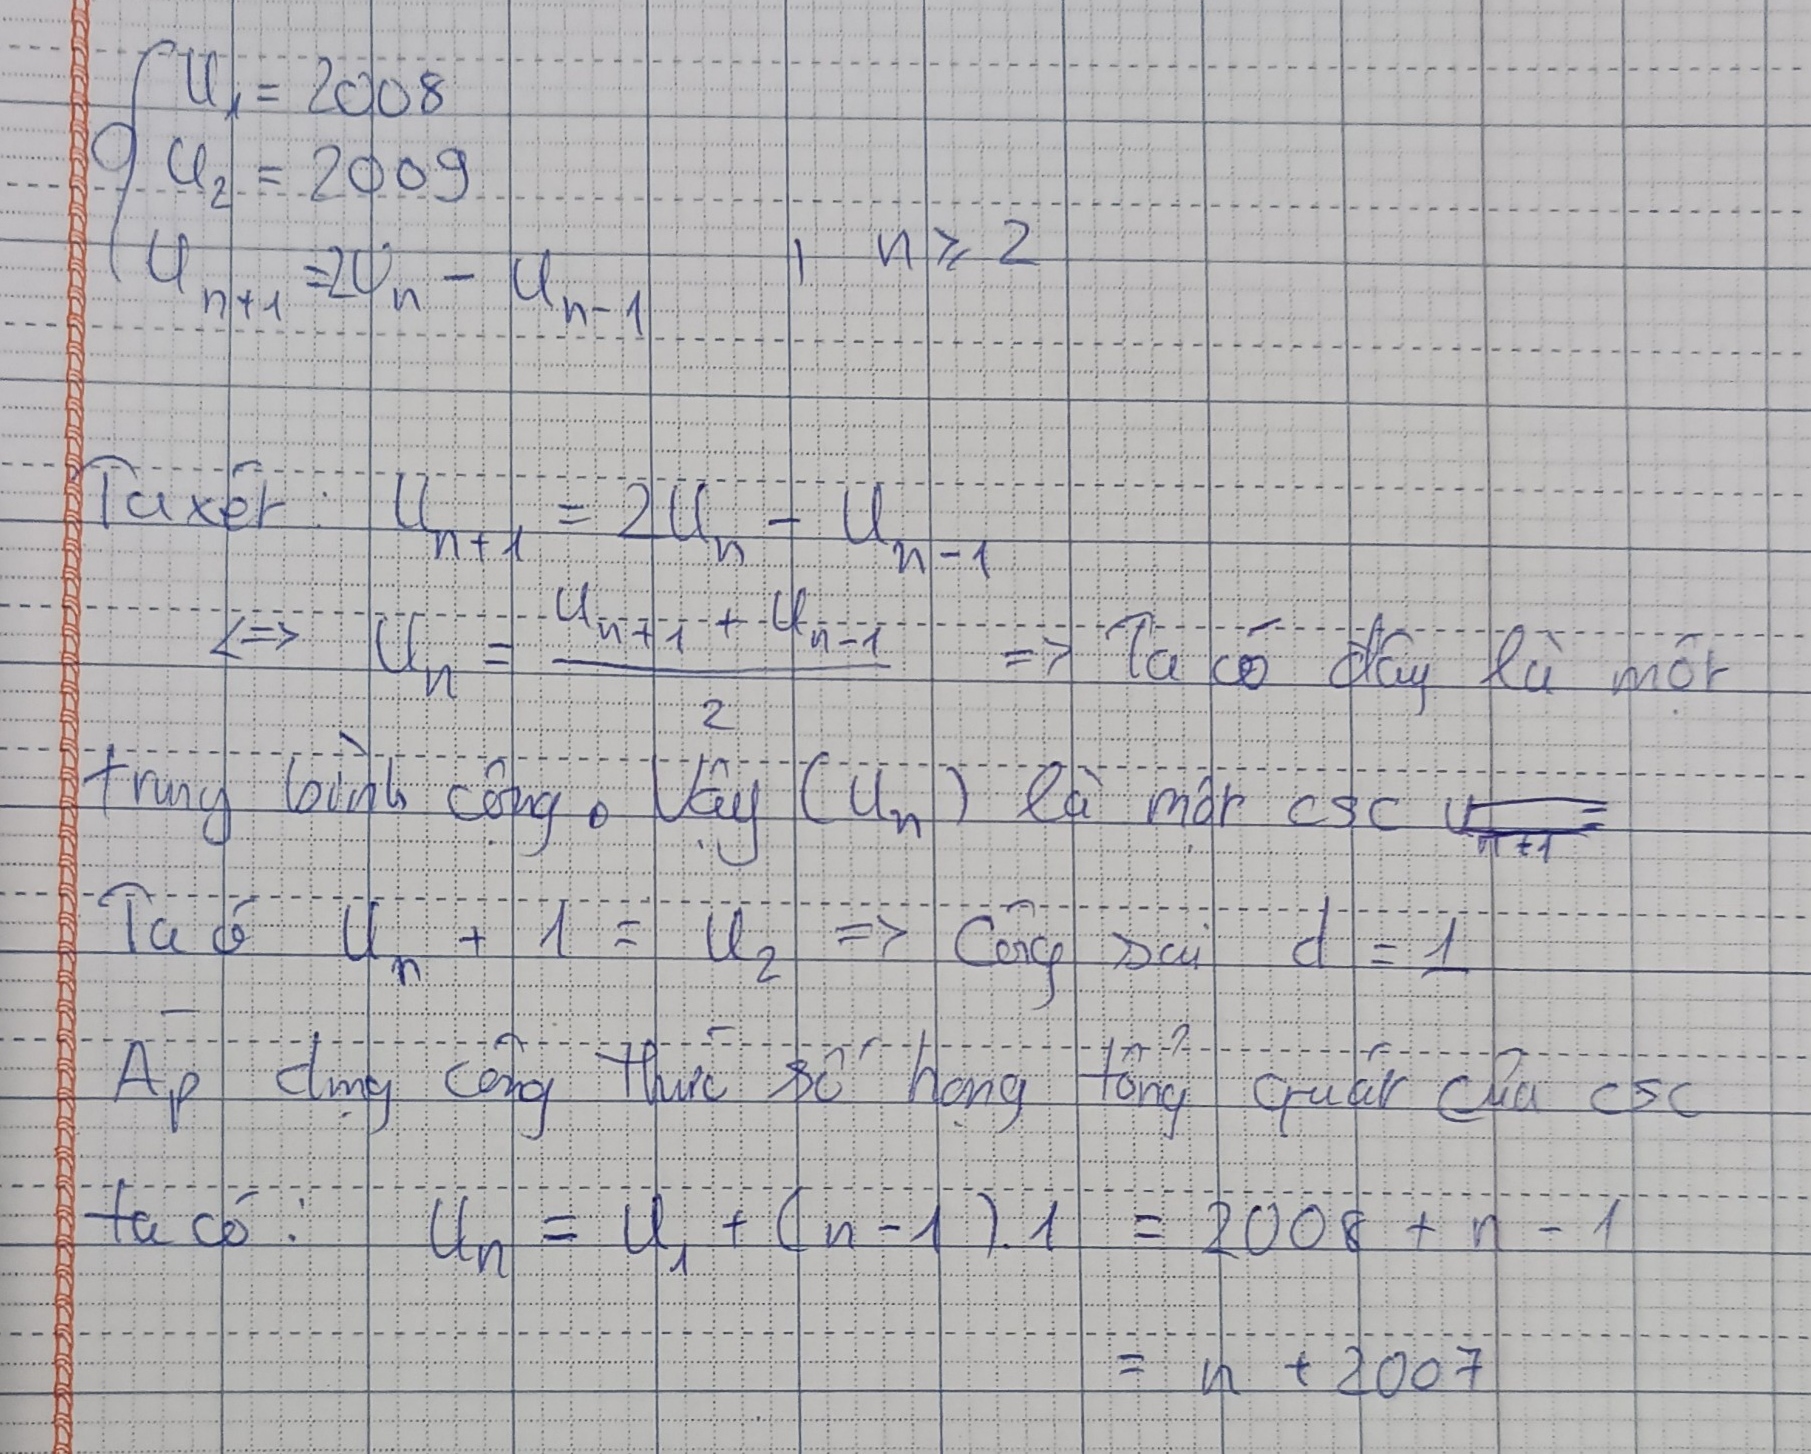 U₁ = 2008
U₂ = 2009
Uₙ₊₁ = 2Uₙ - Uₙ₋₁ , n ≥ 2
Ta xét: Uₙ₊₁ = 2Uₙ - Uₙ₋₁
<=> Uₙ = (Uₙ₊₁ + Uₙ₋₁)/2 => Ta có đây là một
trung bình cộng. Vậy (Uₙ) là một csc
Ta có Uₙ + 1 = U₂ => Công sai d = 1
Áp dụng công thức số hạng tổng quát của csc
ta có: Uₙ = U₁ + (n-1).1 = 2008 + n - 1
= n + 2007